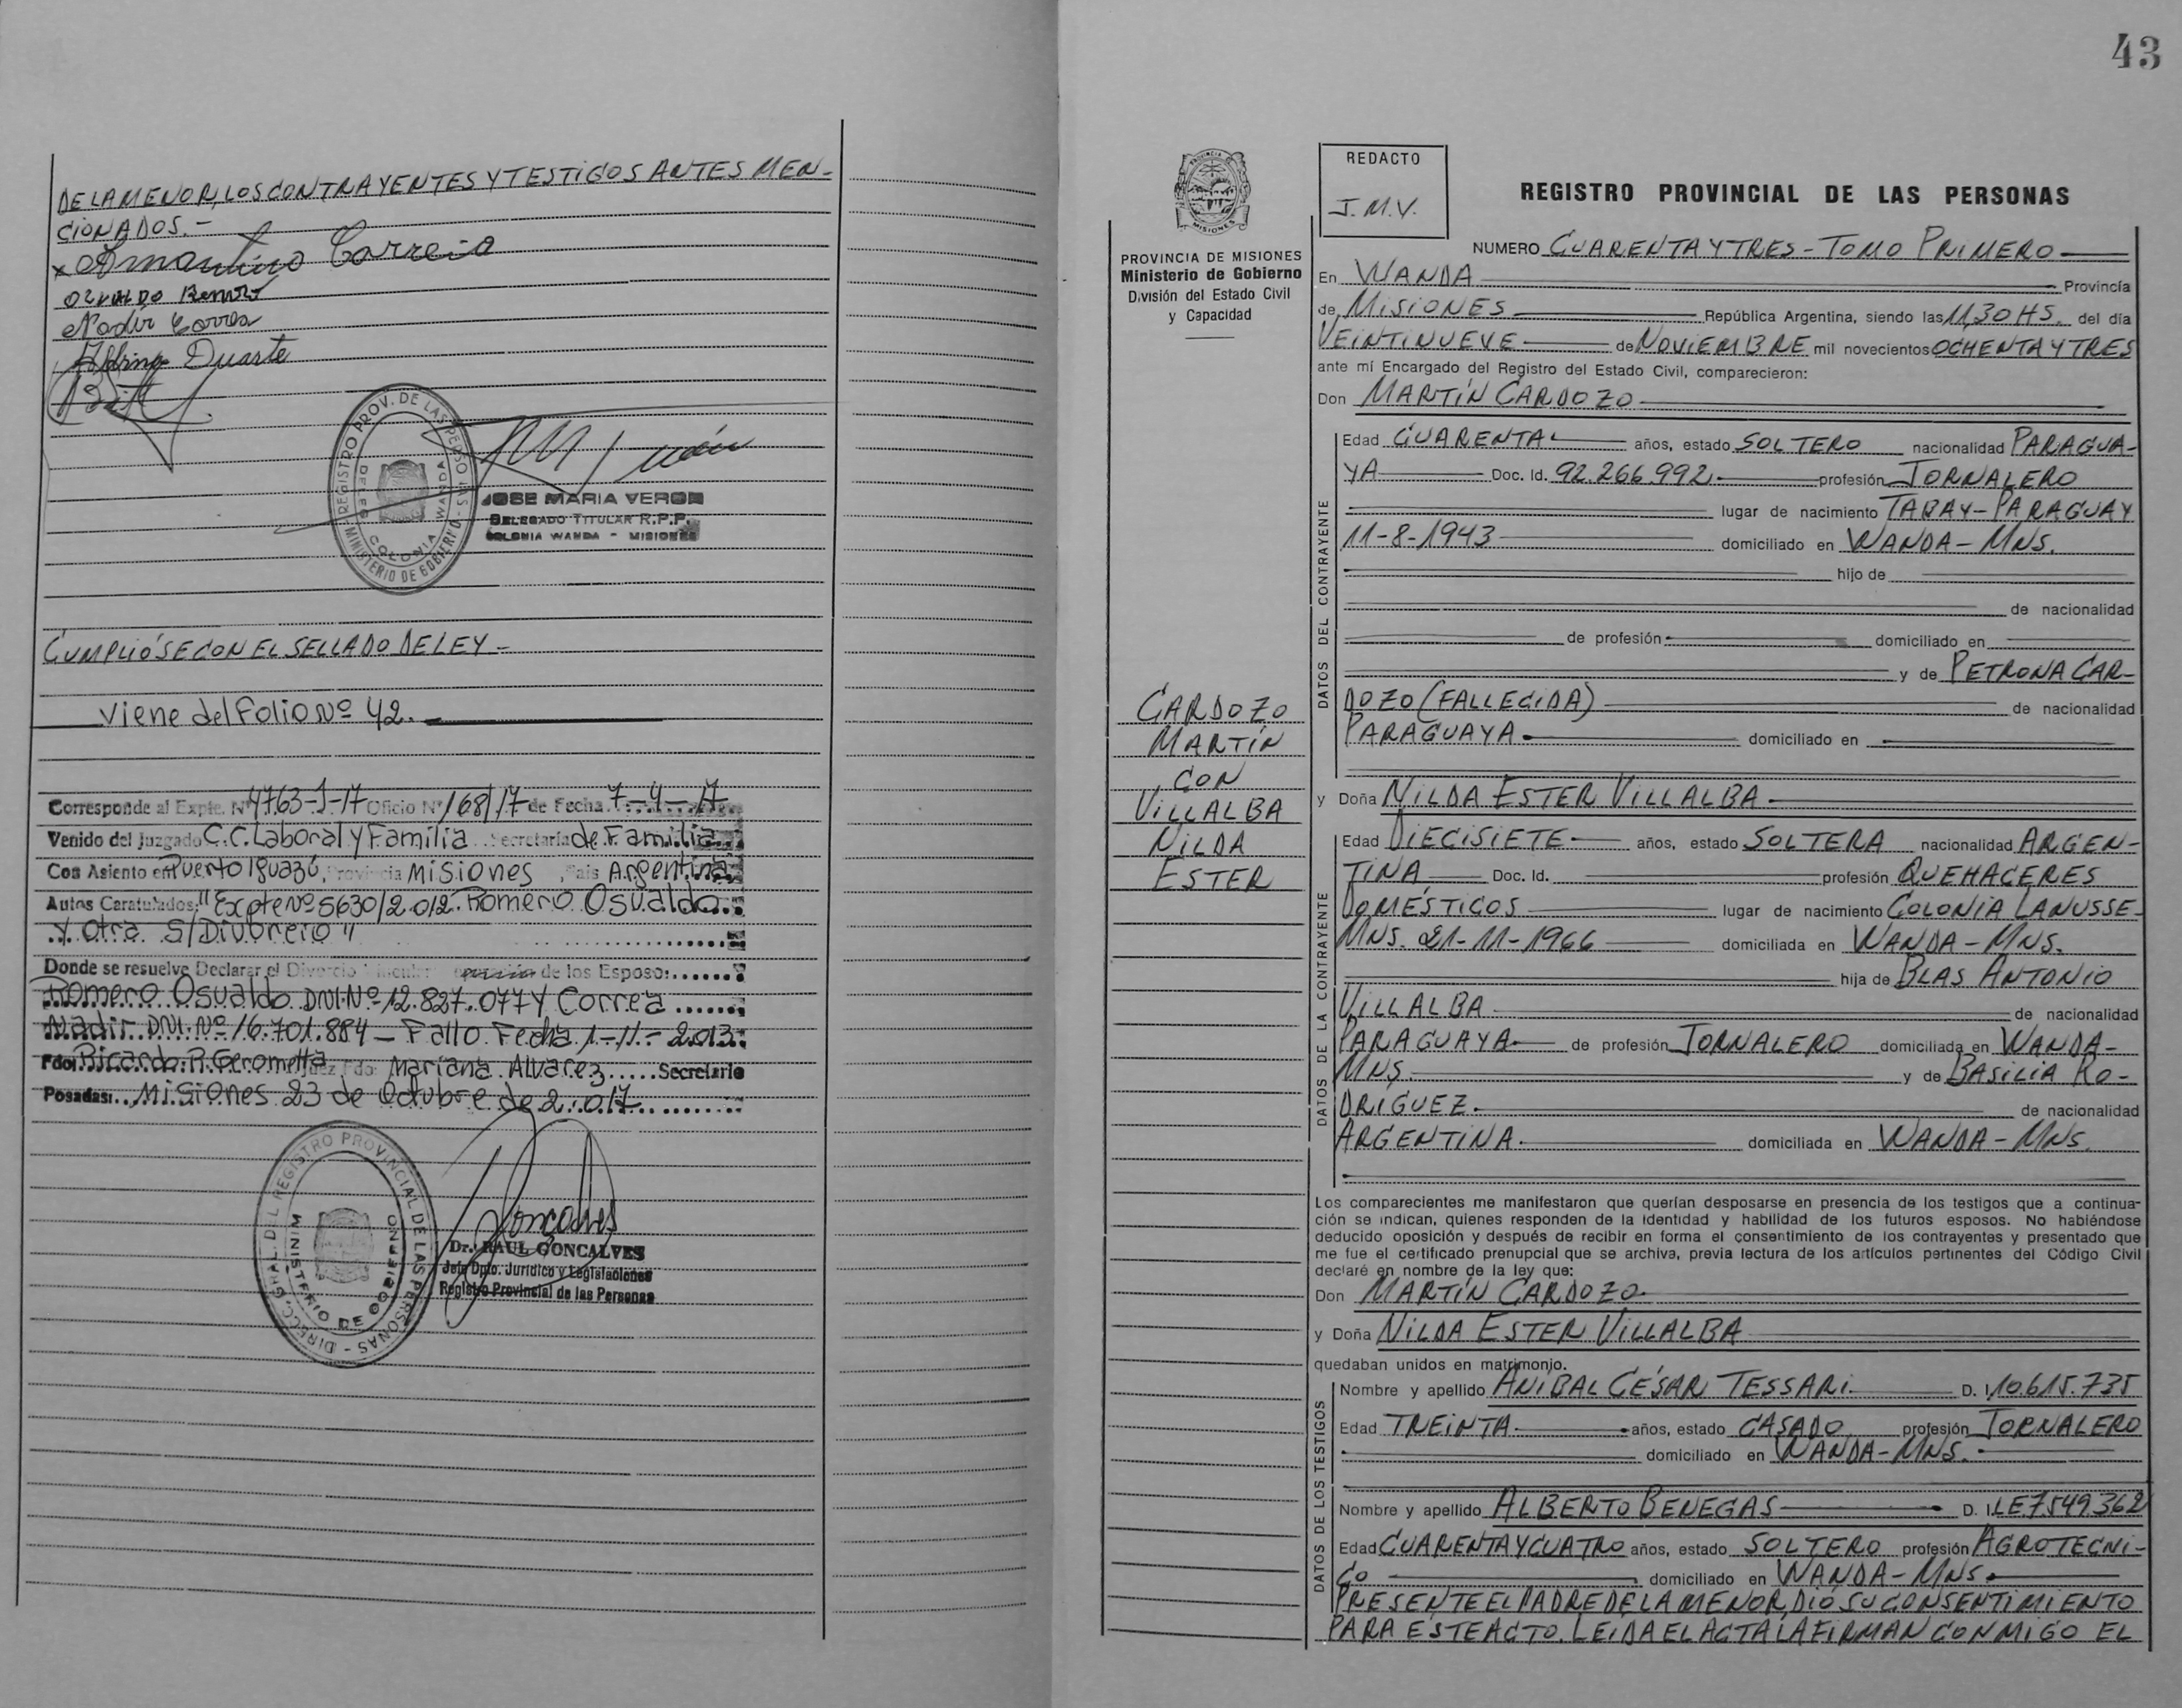 DE LA MENOR, LOS CONTRAYENTES Y TESTIGOS ANTES MEN-
CIONADOS.-
x Armantino Correia
OZVALDO Romero
Nadir Correa
Duarte
MINISTERIO DE GOBIERNO - REGISTRO PROV. DE LAS PERSONAS
COLONIA WANDA
JOSE MARIA VERON
DELEGADO TITULAR R.P.P.
COLONIA WANDA - MISIONES
CUMPLIÓSE CON EL SELLADO DE LEY-
Viene del Folio Nº 42.
Corresponde al Expte. Nº 4763-J-17 Oficio Nº 168/17 de Fecha 7-4-17
Venido del Juzgado C.C. Laboral y Familia Secretaría de Familia
Con Asiento en Puerto Iguazú, Provincia Misiones, Pais Argentina
Autos Caratulados: "Expte Nº 5630/2.012. Romero Osvaldo
y Otra S/Divorcio"
Donde se resuelve Declarar el Divorcio Vincular de los Esposos
Romero Osvaldo DNI. Nº 12.827.077 y Correa
Nadir DNI. Nº 16.701.884 - Fallo Fecha 1-11-2.013
Fdo: Ricardo R. Gerometta Juez Fdo: Mariana Alvarez Secretario
Posadas: Misiones 23 de Octubre de 2.017
DIRECC. GRAL. DEL REGISTRO PROVINCIAL DE LAS PERSONAS -
MINISTERIO DE GOBIERNO
Dr. RAUL GONCALVES
Jefe Dpto. Jurídico y Legislaciones
Registro Provincial de las Personas
43
PROVINCIA DE MISIONES
Ministerio de Gobierno
División del Estado Civil
y Capacidad
CARDOZO
MARTÍN
CON
VILLALBA
NILDA
ESTER
REDACTO
J.M.V.
REGISTRO PROVINCIAL DE LAS PERSONAS
NUMERO CUARENTA Y TRES - TOMO PRIMERO
En WANDA Provincia
de MISIONES República Argentina, siendo las 11,30 HS. del día
VEINTINUEVE de NOVIEMBRE mil novecientos OCHENTA Y TRES
ante mí Encargado del Registro del Estado Civil, comparecieron:
Don MARTÍN CARDOZO
DATOS DEL CONTRAYENTE
Edad CUARENTA años, estado SOLTERO nacionalidad PARAGUA-
YA Doc. Id. 92.266.992 profesión JORNALERO
lugar de nacimiento TABAY-PARAGUAY
11-8-1943 domiciliado en WANDA-MNS.
hijo de
de nacionalidad
de profesión domiciliado en
y de PETRONA CAR-
DOZO (FALLECIDA) de nacionalidad
PARAGUAYA domiciliado en
y Doña NILDA ESTER VILLALBA
DATOS DE LA CONTRAYENTE
Edad DIECISIETE años, estado SOLTERA nacionalidad ARGEN-
TINA Doc. Id. profesión QUEHACERES
DOMÉSTICOS lugar de nacimiento COLONIA LANUSSE-
MNS. 21-11-1966 domiciliada en WANDA-MNS.
hija de BLAS ANTONIO
VILLALBA de nacionalidad
PARAGUAYA de profesión JORNALERO domiciliada en WANDA-
MNS. y de BASILIA RO-
DRIGUEZ. de nacionalidad
ARGENTINA domiciliada en WANDA-MNS.
Los comparecientes me manifestaron que querían desposarse en presencia de los testigos que a continua-
ción se indican, quienes responden de la identidad y habilidad de los futuros esposos. No habiéndose
deducido oposición y después de recibir en forma el consentimiento de los contrayentes y presentado que
me fue el certificado prenupcial que se archiva, previa lectura de los artículos pertinentes del Código Civil
declaré en nombre de la ley que:
Don MARTÍN CARDOZO
y Doña NILDA ESTER VILLALBA
quedaban unidos en matrimonio.
DATOS DE LOS TESTIGOS
Nombre y apellido ANIBAL CÉSAR TESSARI D. I. 10.615.735
Edad TREINTA años, estado CASADO profesión JORNALERO
domiciliado en WANDA-MNS.
Nombre y apellido ALBERTO BENEGAS D. I. LE 7.549.362
Edad CUARENTA Y CUATRO años, estado SOLTERO profesión AGROTECNI-
CO domiciliado en WANDA-MNS
PRESENTE EL PADRE DE LA MENOR, DIÓ SU CONSENTIMIENTO
PARA ESTE ACTO. LEÍDA EL ACTA LA FIRMAN CONMIGO EL